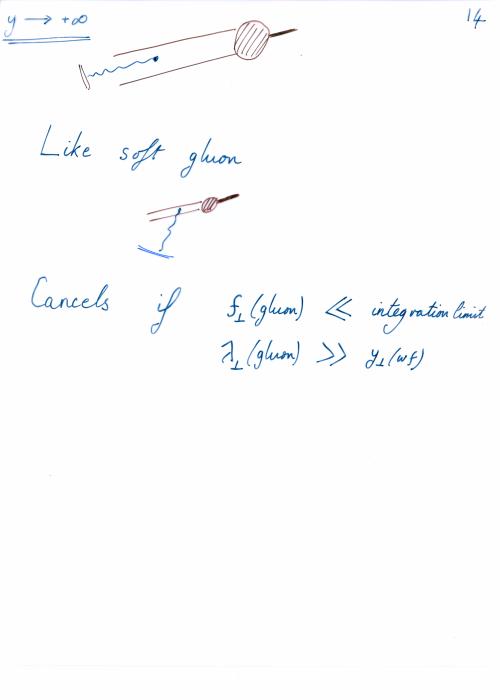 y → +∞
14
Like soft gluon
Cancels if f⊥(gluon) ≪ integration limit
λ⊥(gluon) ≫ y⊥(wf)